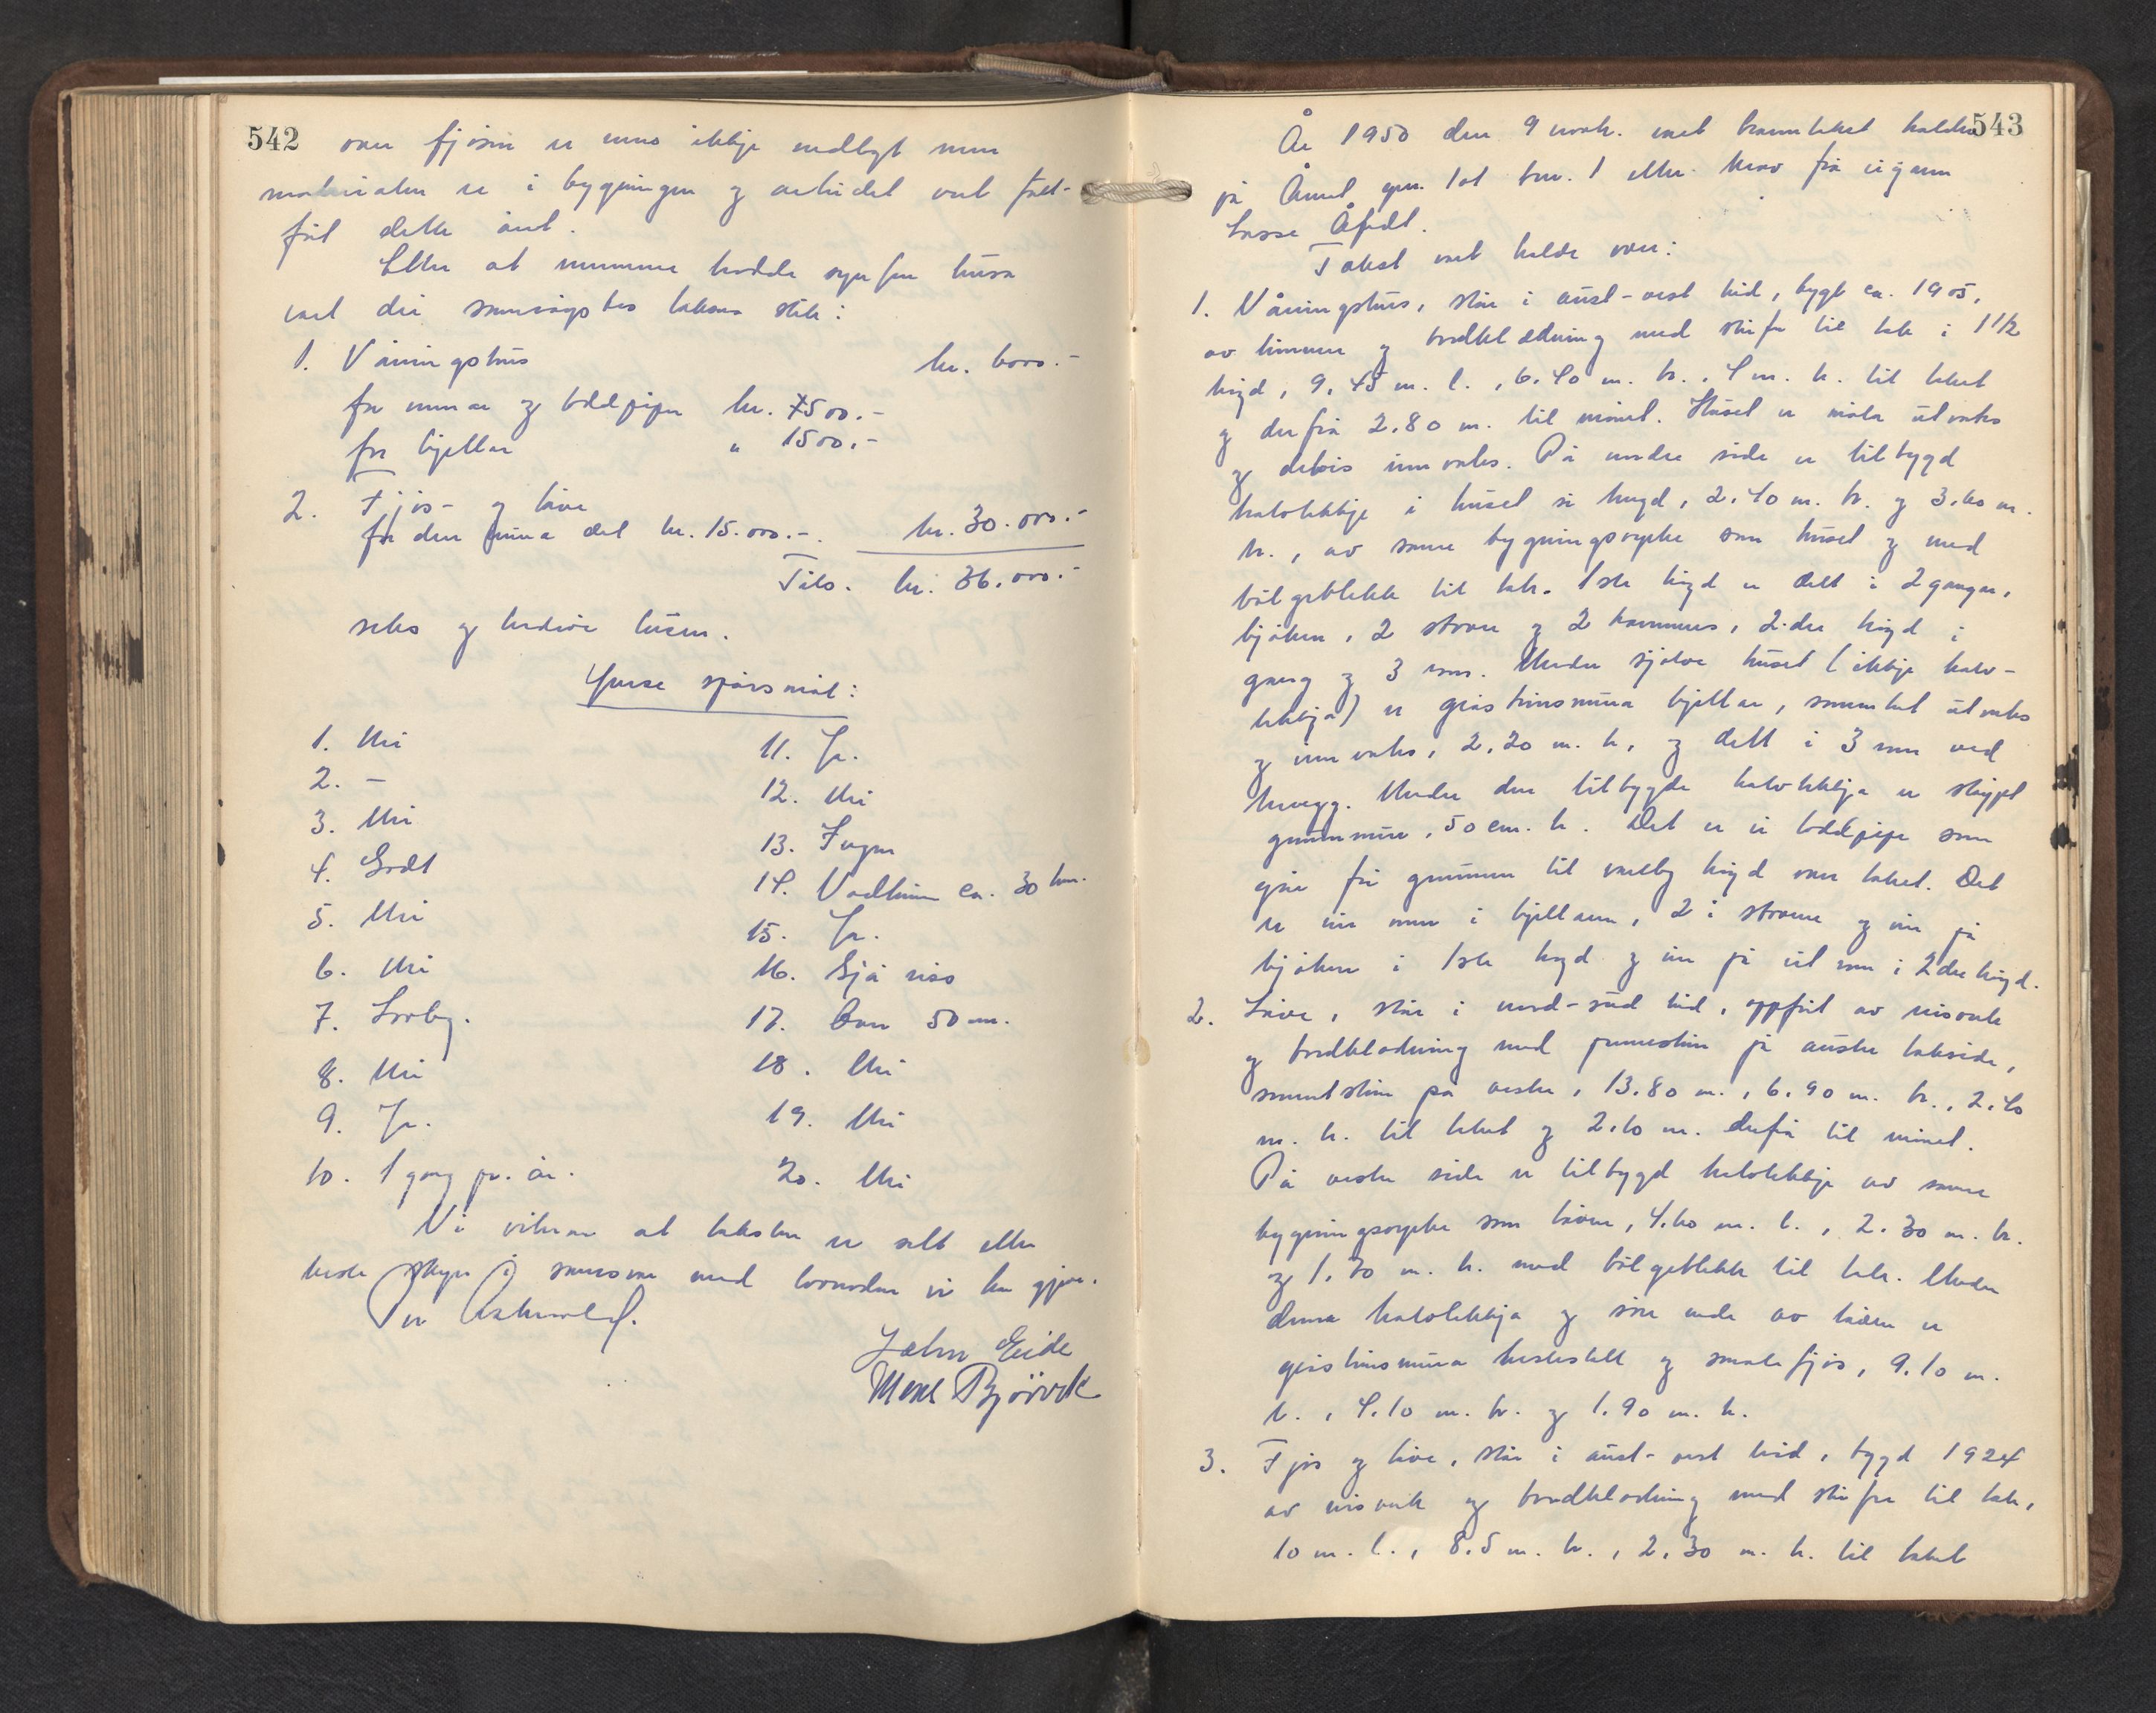 542
over fjøsen er enno ikkje nedlagt men
materialen er i bygningen og arbeidet vert full-
ført dette året.
Etter at nemnda hadde synfare husa
vart dei samrøystes taksera slik:
1. Våningshus kr. 6000.-
for murar og eldpipe kr. 4500.-
for kjellar " 1500.-
2. Fjøs- og løve
for den mura del kr. 15.000.-. kr. 30.000.-
Tils. kr. 36.000.-
seks og tredive tusen.
Ymse spørsmål:
1. Nei
2. -
3. Nei
4. Godt
5. Nei
6. Nei
7. Lovleg.
8. Nei
9. Ja.
10. 1 gong pr. år.
11. Ja.
12. Nei
13. Ingen
14. Vadheim ca. 30 km.
15. Ja.
16. Sjå riss
17. Over 50 m.
18. Nei
19. Nei
20. Nei
Vi vitnar at taksten er sett etter
beste skyn i samsvar med lovnaden vi har gjeve.
Per
John Eide
Mons Bjørvik
543
År 1950 den 9 novbr. vart branntakst halden
på Åmot gnr. 101 bnr. 1 etter krav frå eigaren
Lasse Åfedt.
Takst vart halde over:
1. Våningshus, står i aust-vest leid, bygt ca. 1905,
av timmer og bordkledning med skifer til tak i 1 1/2
høgd, 9,45 m. l., 6,40 m. br., 4 m. h. til taket
og derfrå 2.80 m. til mønet. Huset er måla utvakes
og delvis innvakes. På nordre side er tilbygd
halvtekkje i huset si høgd, 2,40 m. br. og 3.60 m.
h., av same bygningsmåte som huset og med
bølgeblekk til tak. 1ste høgd er delt i 2 gangar,
kjøken, 2 stover og 2 kammers, 2.dre høgd i
gang og 3 rom. Under sjølve huset (ikkje halv-
tekkja) er gråsteinsmura kjellar, sementert utvakes
og innvakes, 2,20 m. h., og delt i 3 rom ved
trevegg. Under den tilbygde halvtekkja er støypt
grunnmur, 50 cm. h. Det er ei eldpipe som
går frå grunnen til vanleg høgd over taket. Det
er ein omn i kjellaren, 2 i stovene og ein på
kjøken i 1ste høgd og ein på eit rom i 2dre høgd.
2. Løve, står i nord-sud leid, oppført av reisverk
og bordkledning med pannestein på austre takside,
sementstein på vestre, 13.80 m., 6.90 m. br., 2,40
m. h. til taket og 2.60 m. derfrå til mønet.
På vestre side er tilbygd halvtekkje av same
bygningsmåte som løven, 4.60 m. l., 2.30 m. br.
og 1.70 m. h. med bølgeblekk til tak. Under
denne halvtekkja og søre ende av løven er
gråsteinsmura hestestall og smalefjøs, 9.10 m.
l., 4.10 m. br. og 1.90 m. h.
3. Fjøs og løve, står i aust-vest leid, bygd 1924
av reisverk og bordkledning med skifer til tak,
10 m. l., 8.5 m. br., 2,30 m. h. til taket